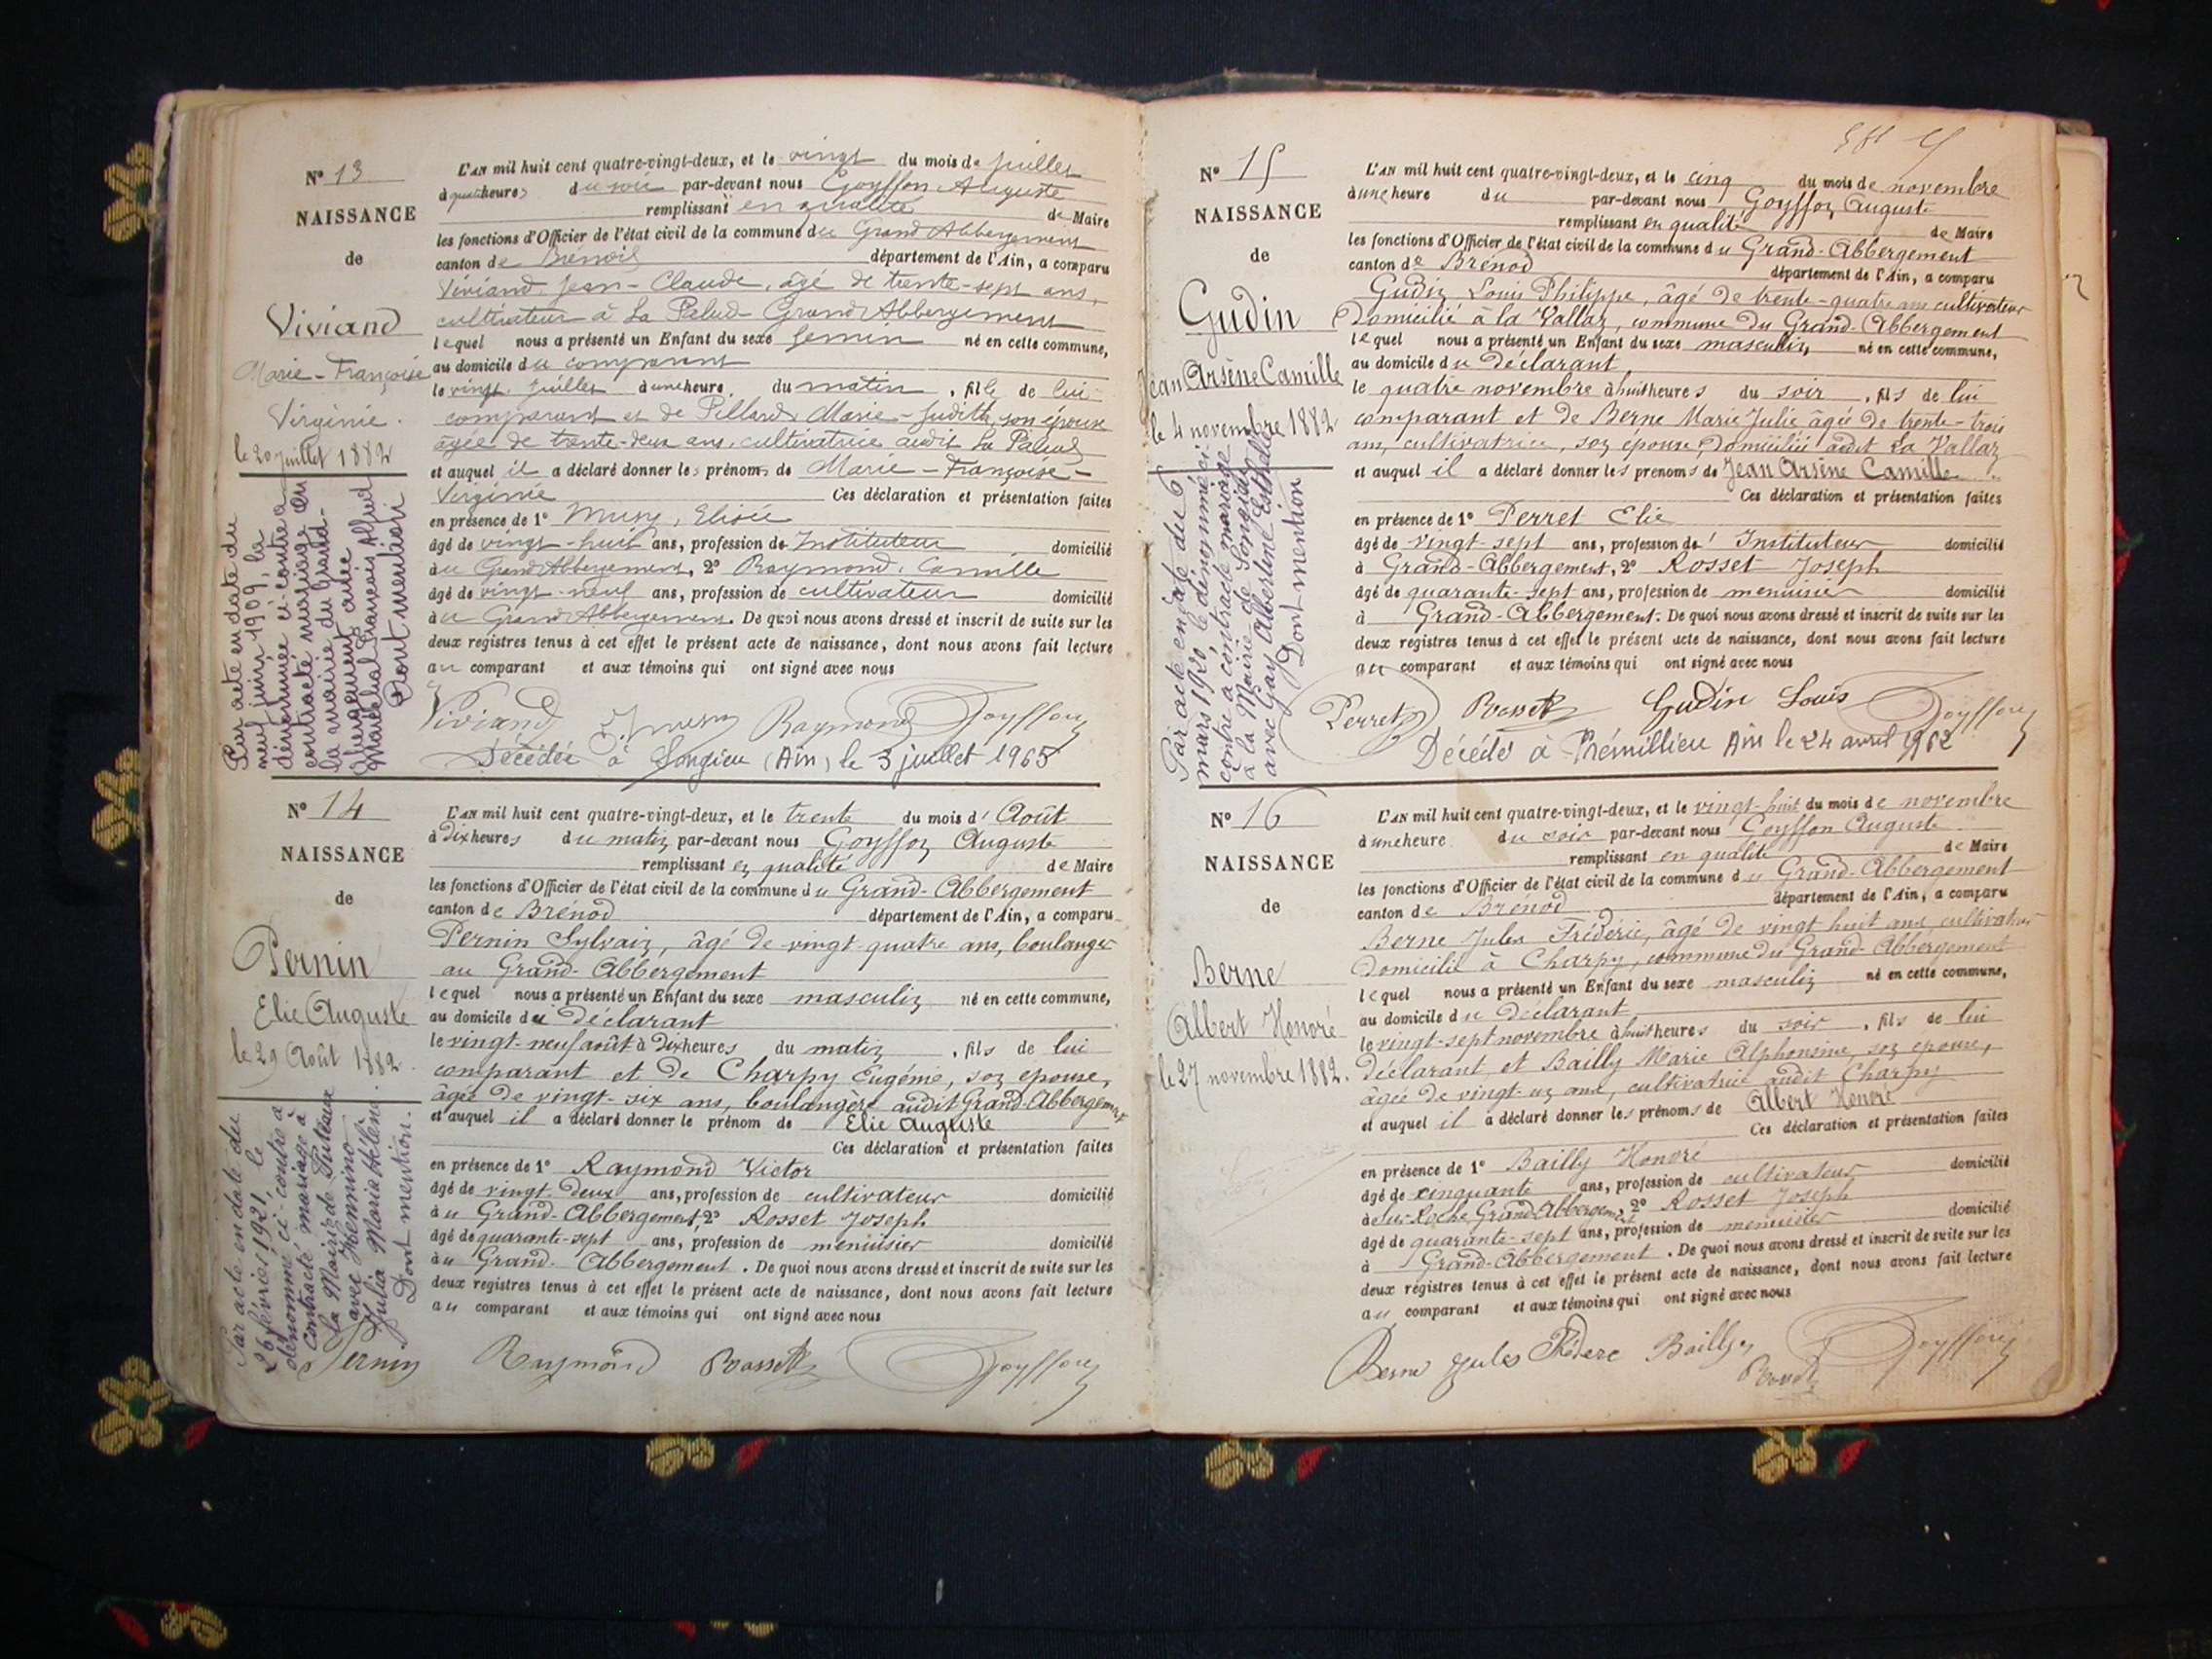 N° 13
NAISSANCE
de
Viviand
Marie-Françoise
Virginie.
le 20 juillet 1882
Par acte en date du
neuf juin 1909, la
dénommée ci-contre a
contracté mariage en
la mairie du Grand-
Abergement avec
Maréchal François Alfred
Dont mention
L'AN mil huit cent quatre-vingt-deux, et le vingt du mois de juillet
à quatre heures du soir par-devant nous Goyffon Auguste
remplissant en qualité de Maire
les fonctions d'Officier de l'état civil de la commune du Grand Abbergement
canton de Brénod département de l'Ain, a comparu
Viviand Jean-Claude, âgé de trente-sept ans,
cultivateur à La Palud Grand Abbergement
lequel nous a présenté un Enfant du sexe féminin né en cette commune,
au domicile du comparant
le vingt juillet à une heure du matin, fille de lui
comparant et de Pilland Marie-Judith, son épouse
âgée de trente-deux ans, cultivatrice audit La Palud
et auquel il a déclaré donner les prénoms de Marie-Françoise-
Virginie Ces déclaration et présentation faites
en présence de 1° Musy, Elisée
âgé de vingt-huit ans, profession de Instituteur domicilié
au Grand Abbergement, 2° Raymond, Camille
âgé de vingt-neuf ans, profession de cultivateur domicilié
au Grand Abbergement. De quoi nous avons dressé et inscrit de suite sur les
deux registres tenus à cet effet le présent acte de naissance, dont nous avons fait lecture
au comparant et aux témoins qui ont signé avec nous
Viviand Musy Raymond Goyffon
Décédée à Songieu (Ain) le 3 juillet 1965
N° 14
NAISSANCE
de
Pernin
Elie Auguste
le 29 Août 1882.
Par acte en date du
26 février 1921, le
dénommé ci-contre a
contracté mariage à
la Mairie de Puteaux
avec
Julia Maria Hélène
Dont mention.
L'AN mil huit cent quatre-vingt-deux, et le trente du mois d'Août
à dix heures du matin par-devant nous Goyffon Auguste
remplissant en qualité de Maire
les fonctions d'Officier de l'état civil de la commune du Grand-Abbergement
canton de Brénod département de l'Ain, a comparu
Pernin Sylvain, âgé de vingt-quatre ans, boulanger
au Grand-Abbergement
lequel nous a présenté un Enfant du sexe masculin né en cette commune,
au domicile du déclarant
le vingt-neuf août à dix heures du matin, fils de lui
comparant et de Charpy Eugénie, son épouse,
âgée de vingt-six ans, boulangère audit Grand-Abbergement
et auquel il a déclaré donner le prénom de Elie Auguste
Ces déclaration et présentation faites
en présence de 1° Raymond Victor
âgé de vingt-deux ans, profession de cultivateur domicilié
au Grand-Abbergement, 2° Rosset Joseph
âgé de quarante-sept ans, profession de menuisier domicilié
au Grand-Abbergement. De quoi nous avons dressé et inscrit de suite sur les
deux registres tenus à cet effet le présent acte de naissance, dont nous avons fait lecture
au comparant et aux témoins qui ont signé avec nous
Pernin Raymond Rosset Goyffon
N° 15
NAISSANCE
de
Gudin
Jean Arsène Camille
le 4 novembre 1882
Par acte en date du 6
mars 1920, le dénommé ci-
contre a contracté mariage
à la Mairie de Songieu
avec Gay Albertine Esthelle
Dont mention
L'AN mil huit cent quatre-vingt-deux, et le cinq du mois de novembre
à une heure du par-devant nous Goyffon Auguste
remplissant en qualité de Maire
les fonctions d'Officier de l'état civil de la commune du Grand-Abbergement
canton de Brénod département de l'Ain, a comparu
Gudin Louis Philippe, âgé de trente-quatre ans cultivateur
domicilié à la Vallaz, commune du Grand-Abbergement
lequel nous a présenté un Enfant du sexe masculin, né en cette commune,
au domicile du déclarant
le quatre novembre à huit heures du soir, fils de lui
comparant et de Berne Marie Julie âgée de trente-trois
ans, cultivatrice, son épouse, domiciliée audit La Vallaz
et auquel il a déclaré donner les prénoms de Jean Arsène Camille
Ces déclaration et présentation faites
en présence de 1° Perret Elie
âgé de vingt-sept ans, profession de Instituteur domicilié
à Grand-Abbergement, 2° Rosset Joseph
âgé de quarante-sept ans, profession de menuisier domicilié
à Grand-Abbergement. De quoi nous avons dressé et inscrit de suite sur les
deux registres tenus à cet effet le présent acte de naissance, dont nous avons fait lecture
au comparant et aux témoins qui ont signé avec nous
Perret Rosset Gudin Louis Goyffon
Décédé à Prémillieu Ain le 24 avril 1962
N° 16
NAISSANCE
de
Berne
Albert Honoré
le 27 novembre 1882.
L'AN mil huit cent quatre-vingt-deux, et le vingt-huit du mois de novembre
à une heure du soir par-devant nous Goyffon Auguste
remplissant en qualité de Maire
les fonctions d'Officier de l'état civil de la commune du Grand-Abbergement
canton de Brénod département de l'Ain, a comparu
Berne Jules Fréderic, âgé de vingt huit ans, cultivateur
domicilié à Charpy, commune du Grand Abbergement
lequel nous a présenté un Enfant du sexe masculin né en cette commune,
au domicile du déclarant
le vingt-sept novembre à huit heures du soir, fils de lui
déclarant, et Bailly Marie Alphonsine, son épouse,
âgée de vingt-un ans, cultivatrice audit Charpy
et auquel il a déclaré donner les prénoms de Albert Honoré
Ces déclaration et présentation faites
en présence de 1° Bailly Honoré
âgé de cinquante ans, profession de cultivateur domicilié
à Sur-Roche Grand Abbergement, 2° Rosset Joseph
âgé de quarante-sept ans, profession de menuisier domicilié
à Grand-Abbergement. De quoi nous avons dressé et inscrit de suite sur les
deux registres tenus à cet effet le présent acte de naissance, dont nous avons fait lecture
au comparant et aux témoins qui ont signé avec nous
Berne Jules Fréderc Bailly Rosset Goyffon